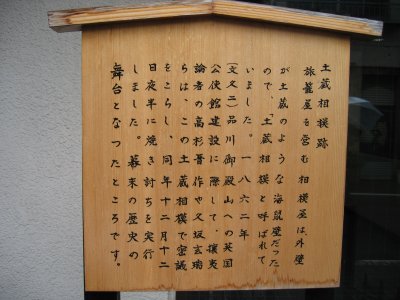 土蔵相模跡
旅籠屋を営む相模屋は外壁
が土蔵のような海鼠壁だった
ので、「土蔵相模」と呼ばれて
いました。一八六二年
(文久二)品川御殿山への英国
公使館建設に際して、攘夷
論者の高杉晋作や久坂玄瑞
らは、この土蔵相模で密議
をこらし、同年十二月十二
日夜半に焼き討ちを実行
しました。幕末の歴史の
舞台となったところです。